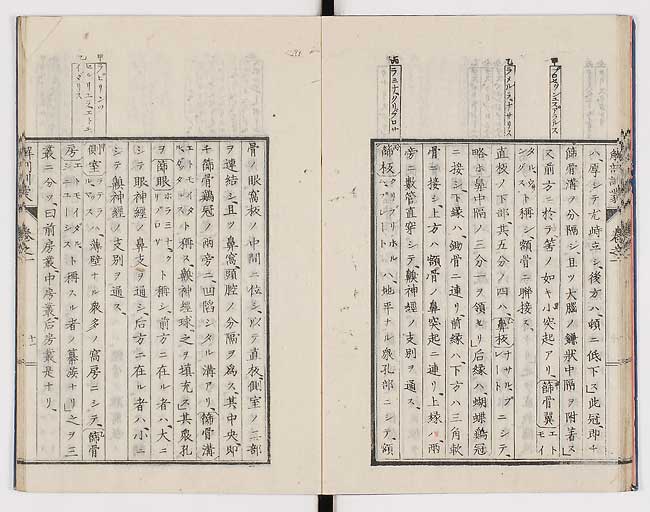 ハ厚シテ尤峙立シ、後方ハ頓ニ低下ス」此冠、即チ
篩骨溝ヲ分隔シ且ツ大脳ノ鎌狀中隔ヲ附著ス」
又前方ニ於テ筈ノ如キ小突起アリ、篩骨翼エトモイ
ト稱シ額骨ニ聯接ス、
直板ノ下部其五分ノ四ハ、鼻板ナサルプレートニシテ、
略ホ鼻中隔ノ三分一ヲ領セリ」后縁ハ、蝴蝶鶏冠
ニ接シ下縁ハ、鋤骨ニ連リ、前縁ハ、下方ハ三角軟
骨ニ接シ、上方ハ額骨ノ鼻突起ニ連リ、上縁ハ両
旁ニ數管直穿シテ、齅神經ノ支別ヲ通ス、
篩板クリブリホルムプレートハ、地平ナル衆孔部ニシテ、額
甲プロセッシュスアラルス
乙ラメルラ、ナサリス
丙ラミナ、クリブロサ
骨ノ眼窩板ノ中間ニ位シ、以テ直板、側室ノ二部
ヲ連結シ、且ツ鼻窩、頭腔ノ分隔ヲ為ス、其中央、即
チ篩骨鶏冠ノ兩旁ニ、凹陷シタル溝アリ、篩骨溝
ト稱ス、齅神經球、之ヲ填充ス」其衆孔
ヲ篩眼ト稱シ、前方ニ在ル者ハ、大ニ
シテ眼神經ノ鼻支ヲ通シ、后方ニ在ル者ハ、小ニ
シテ齅神經ノ支別ヲ通ス、
側室ハ、薄壁ナル衆多ノ窩房ニシテ、篩骨
房ト稱スル者ノ藂簇ナリ」之ヲ三
叢ニ分ツ、曰前房叢、中房叢、后房叢是ナリ、
甲ラビリンツ
卷之一
十一